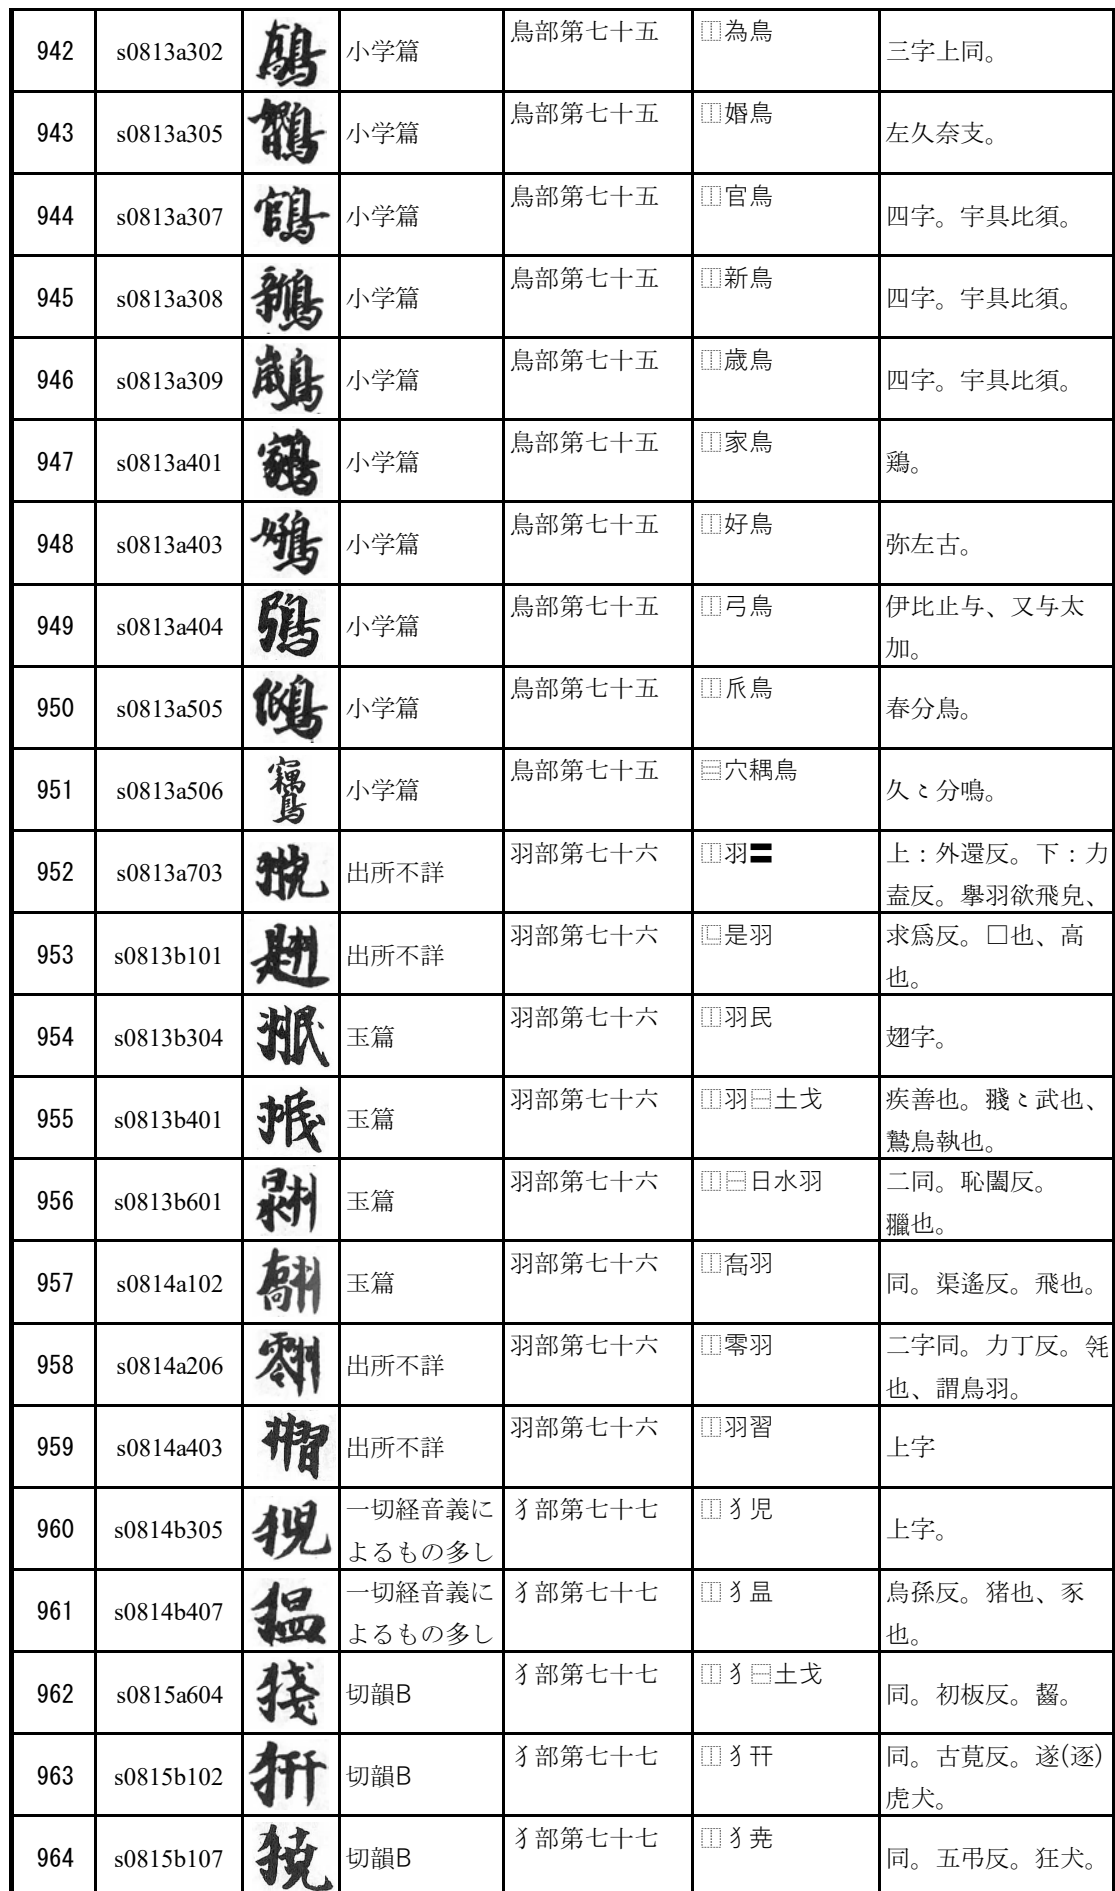 942 s0813a302 小学篇 鳥部第七十五 ⿰為鳥 三字上同。
943 s0813a305 小学篇 鳥部第七十五 ⿰婚鳥 左久奈支。
944 s0813a307 小学篇 鳥部第七十五 ⿰官鳥 四字。宇具比須。
945 s0813a308 小学篇 鳥部第七十五 ⿰新鳥 四字。宇具比須。
946 s0813a309 小学篇 鳥部第七十五 ⿰歳鳥 四字。宇具比須。
947 s0813a401 小学篇 鳥部第七十五 ⿰家鳥 鶏。
948 s0813a403 小学篇 鳥部第七十五 ⿰好鳥 弥左古。
949 s0813a404 小学篇 鳥部第七十五 ⿰弓鳥 伊比止与、又与太
加。
950 s0813a505 小学篇 鳥部第七十五 ⿰𠂢鳥 春分鳥。
951 s0813a506 小学篇 鳥部第七十五 ⿱穴耦鳥 久〻分鳴。
952 s0813a703 出所不詳 羽部第七十六 ⿰羽〓 上：外還反。下：力
盍反。擧羽欲飛皃、
953 s0813b101 出所不詳 羽部第七十六 ⿺是羽 求爲反。□也、高
也。
954 s0813b304 玉篇 羽部第七十六 ⿰羽民 翅字。
955 s0813b401 玉篇 羽部第七十六 ⿰羽⿱土戈 疾善也。㦮〻武也、
鷙鳥執也。
956 s0813b601 玉篇 羽部第七十六 ⿰⿱日水羽 二同。恥闔反。
䎬也。
957 s0814a102 玉篇 羽部第七十六 ⿰髙羽 同。渠遙反。飛也。
958 s0814a206 出所不詳 羽部第七十六 ⿰零羽 二字同。力丁反。㲌
也、謂鳥羽。
959 s0814a403 出所不詳 羽部第七十六 ⿰羽習 上字
960 s0814b305 一切経音義に
よるもの多し 犭部第七十七 ⿰犭児 上字。
961 s0814b407 一切経音義に
よるもの多し 犭部第七十七 ⿰犭昷 烏孫反。猪也、豕
也。
962 s0815a604 切韻B 犭部第七十七 ⿰犭⿱土戈 同。初板反。齧。
963 s0815b102 切韻B 犭部第七十七 ⿰犭幵 同。古莧反。遂(逐)
虎犬。
964 s0815b107 切韻B 犭部第七十七 ⿰犭尭 同。五弔反。狂犬。